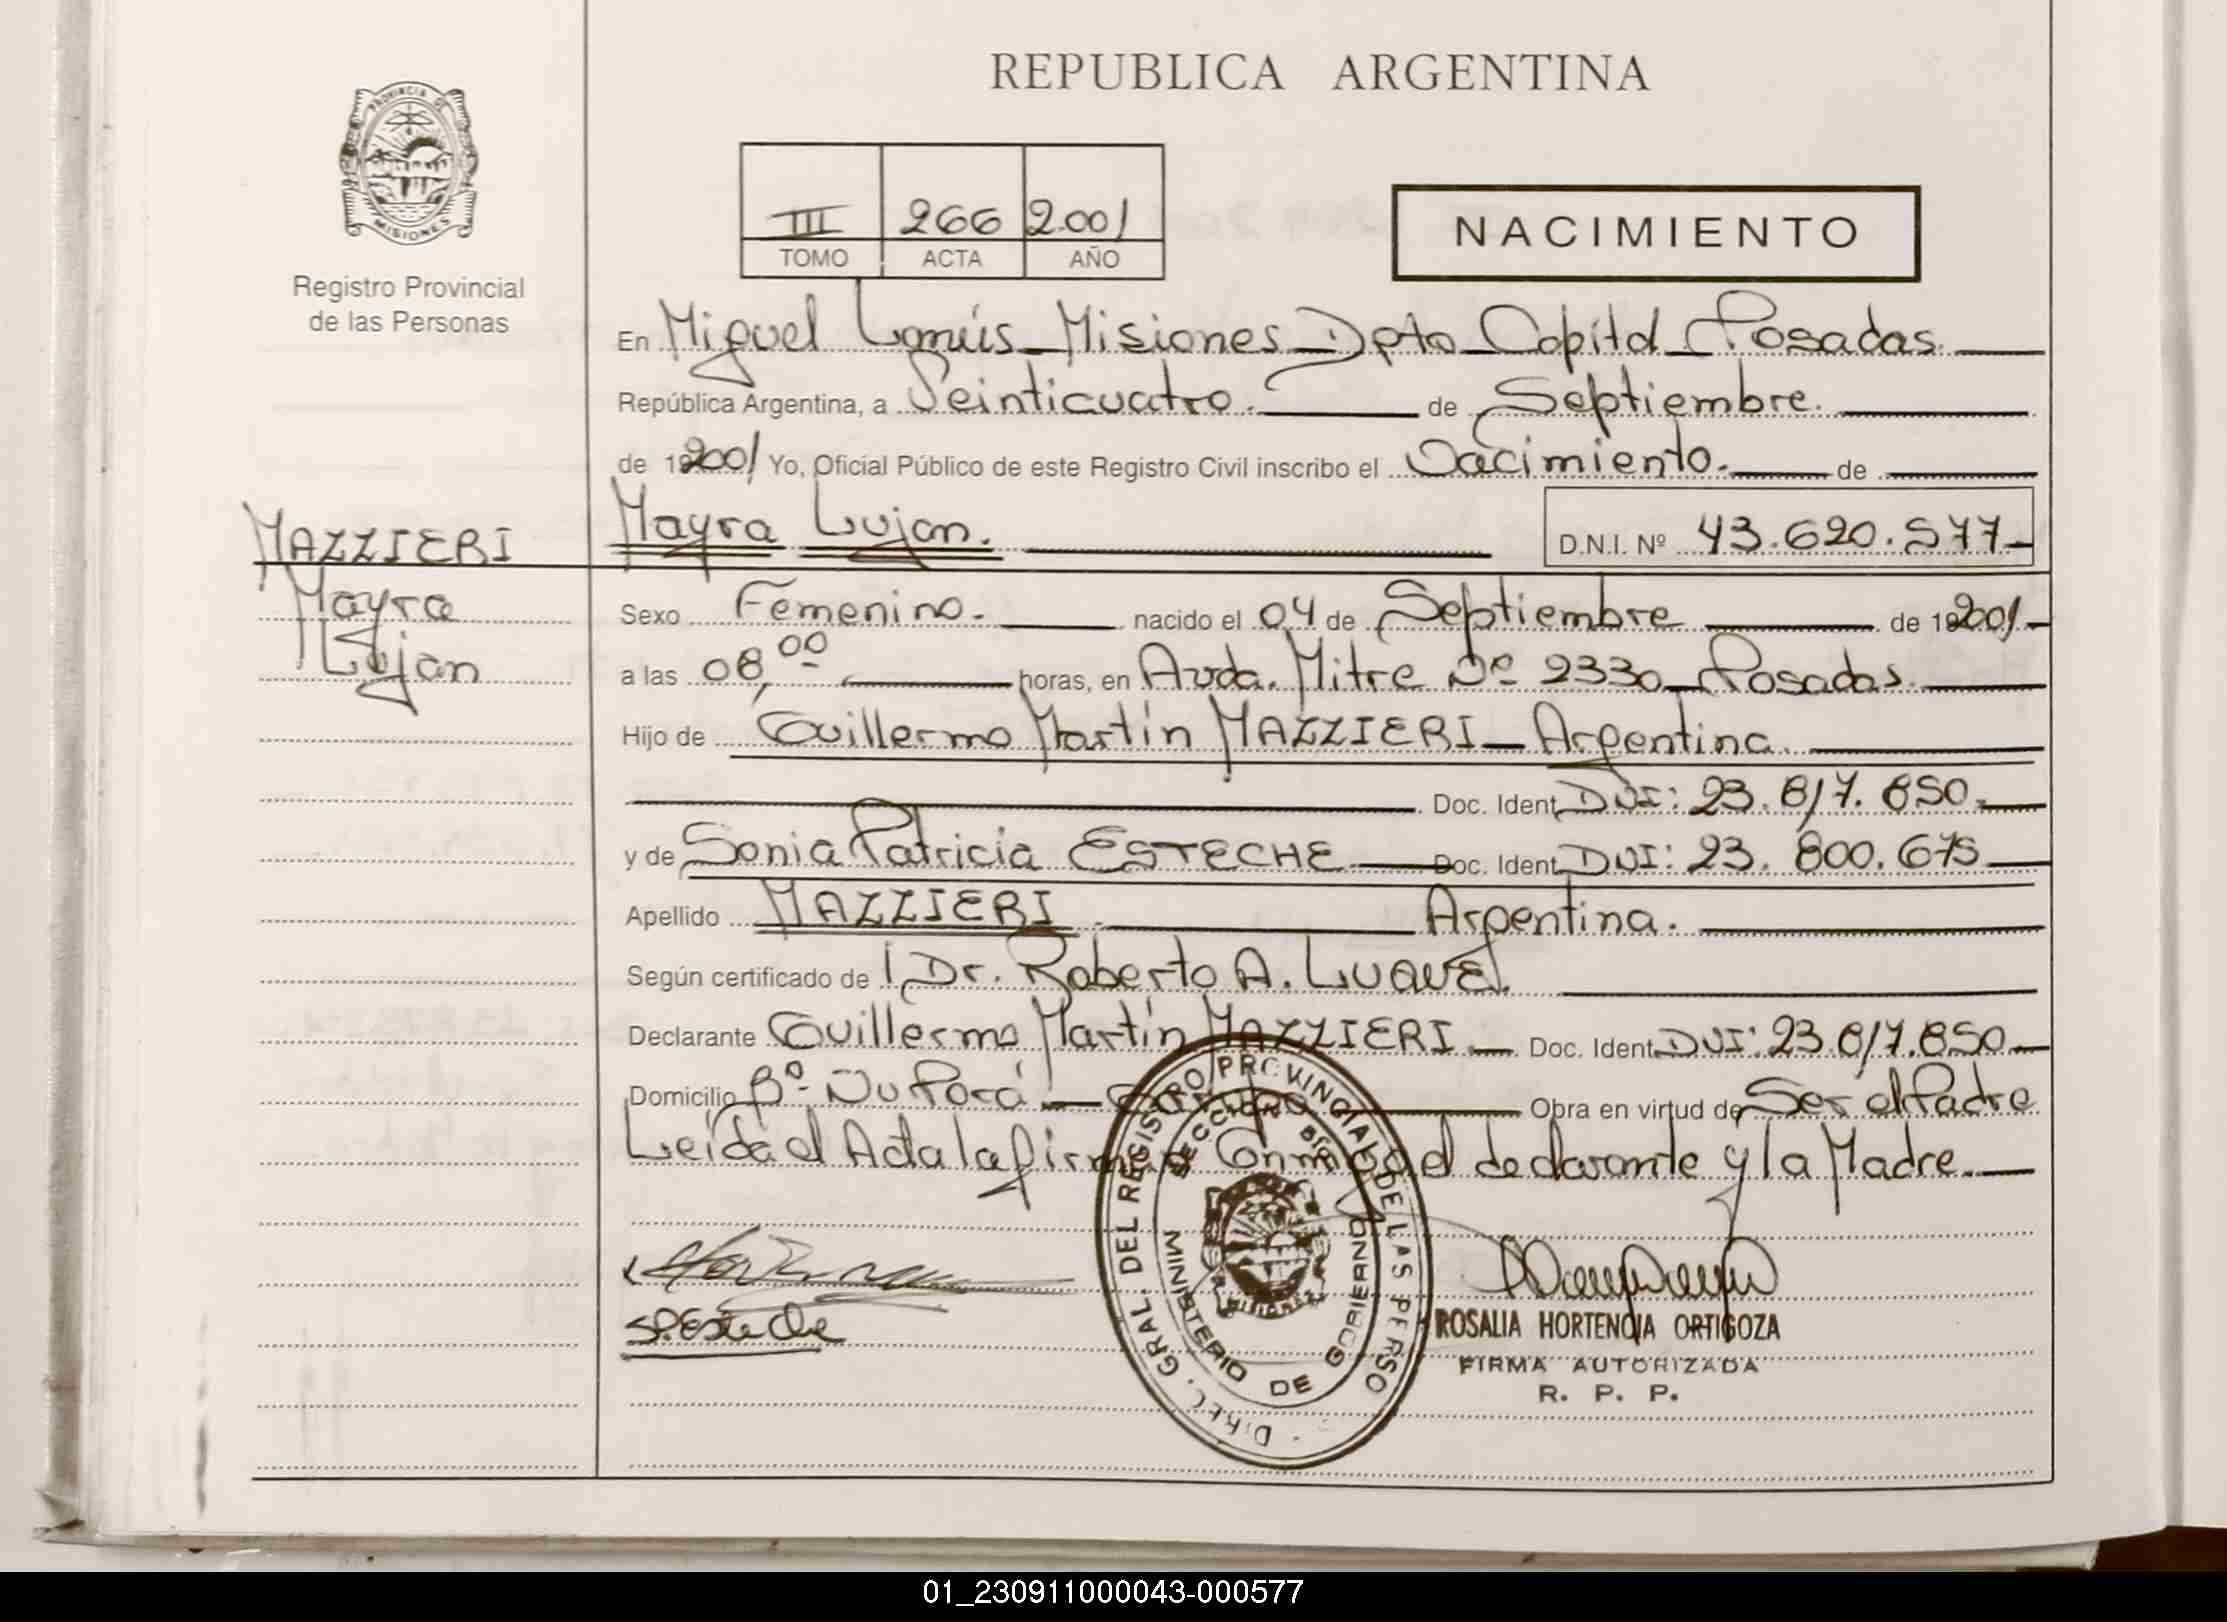 REPUBLICA ARGENTINA
PROVINCIA DE
MISIONES
Registro Provincial
de las Personas
III 266 2.001
TOMO ACTA AÑO
NACIMIENTO
En Miguel Lanús - Misiones - Dpto Capital - Posadas.
República Argentina, a Veinticuatro. de Septiembre.
de 19 2001 Yo, Oficial Público de este Registro Civil inscribo el Nacimiento. de
MAZZIERI
Mayra Lujan.
D.N.I. Nº 43.620.577-
Mayra
Lujan
Sexo Femenino. nacido el 04 de Septiembre de 19 2001-
a las 08,00 horas, en Avda. Mitre Nº 2330 - Posadas.
Hijo de Guillermo Martín MAZZIERI - Argentina.
Doc. Ident. DNI: 23.817.850.
y de Sonia Patricia ESTECHE Doc. Ident. DNI: 23.800.675
Apellido MAZZIERI. Argentina.
Según certificado de Dr. Roberto A. 
Declarante Guillermo Martín MAZZIERI - Doc. Ident. DNI: 23.817.850-
Domicilio Bº Ñu Porá - Obra en virtud de Ser el Padre
Leída el Acta la firman Conmigo el declarante y la Madre.
DIREC. GRAL. DEL REGISTRO PROVINCIAL DE LAS PERSO
SECCION
MINISTERIO DE GOBIERNO
MISIONES
SPEsteche
ROSALIA HORTENCIA ORTIGOZA
FIRMA AUTORIZADA
R. P. P.
01_230911000043-000577